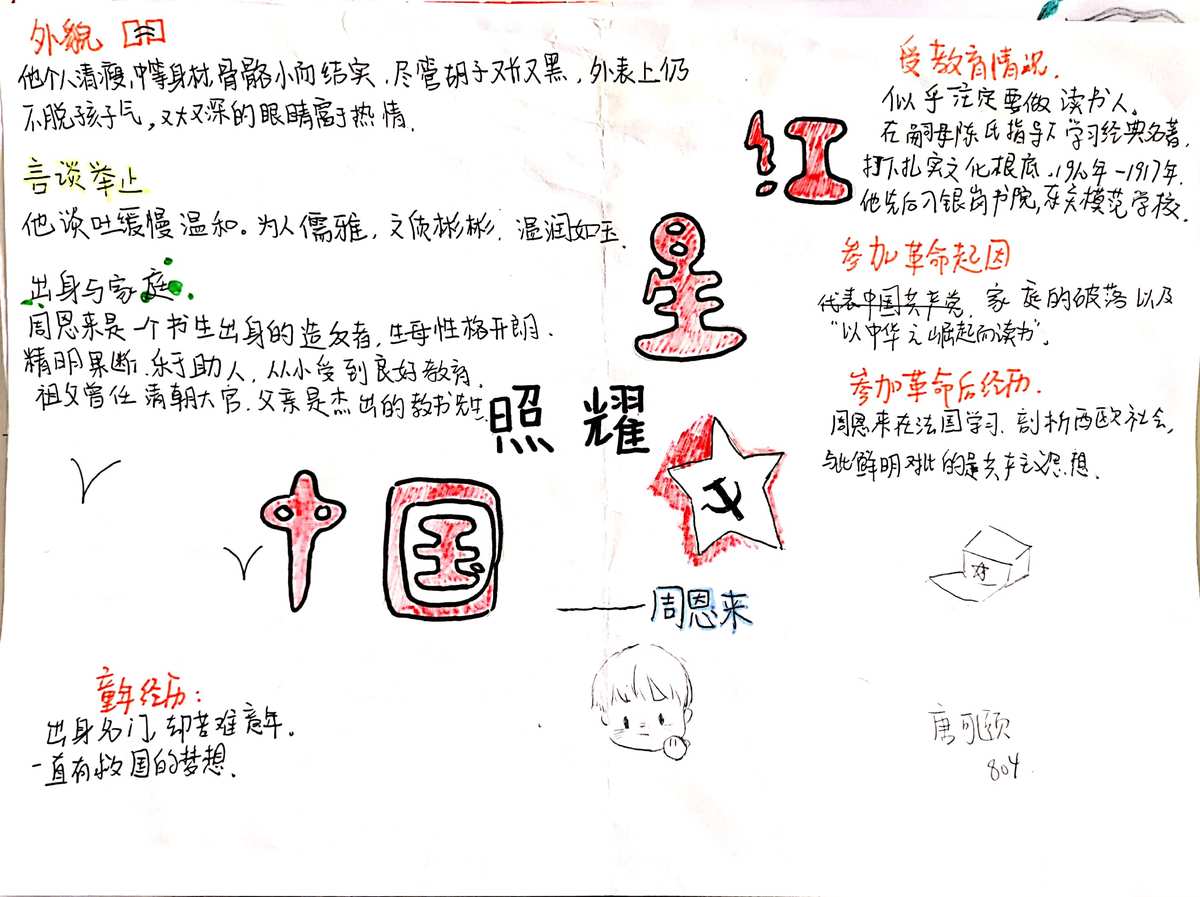 外貌
他个人清瘦,中等身材,骨骼小而结实.尽管胡子又长又黑,外表上仍
不脱孩子气,又大又深的眼睛富于热情.
言谈举止
他谈吐缓慢温和。为人儒雅,文质彬彬.温润如玉.
出身与家庭.
周恩来是一个书生出身的造反者,生母性格开朗.
精明果断.乐于助人,从小受到良好教育.
祖父曾任清朝大官.父亲是杰出的教书先生.
童年经历:
出身名门,却苦难童年。
一直有救国的梦想.
红
星
照耀
中国
——周恩来
受教育情况.
似乎注定要做读书人。
在嗣母陈氏指导下学习经典名著,
打下扎实文化根底.1910年-1917年.
他先后入银岗书院,东关模范学校.
参加革命起因
代表中国共产党.家庭的破落以及
"以中华之崛起而读书".
参加革命后经历.
周恩来在法国学习.剖析西欧社会,
与此鲜明对比的是共产主义思想.
唐可颐
804